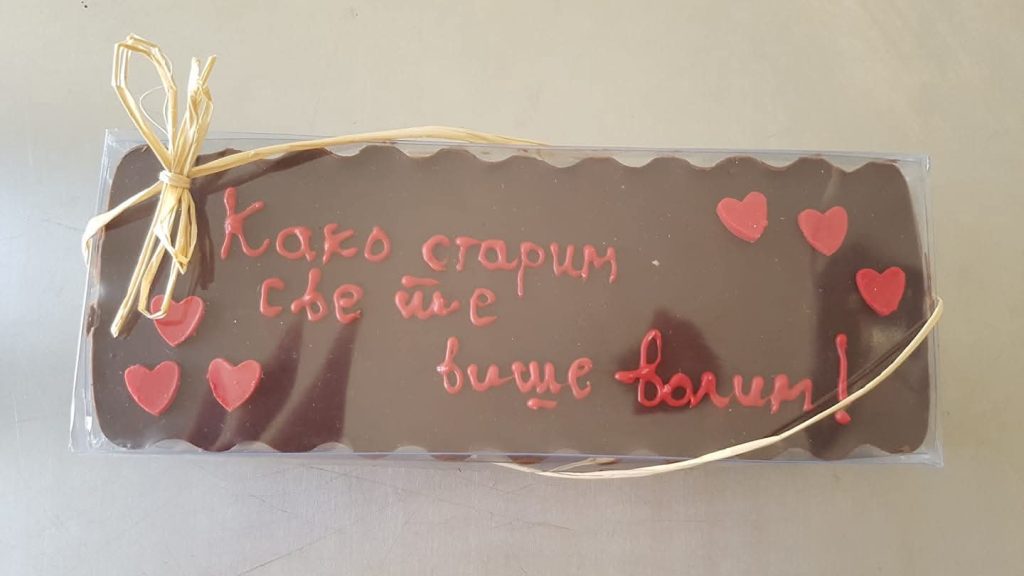 Како старим
све те
више волим!